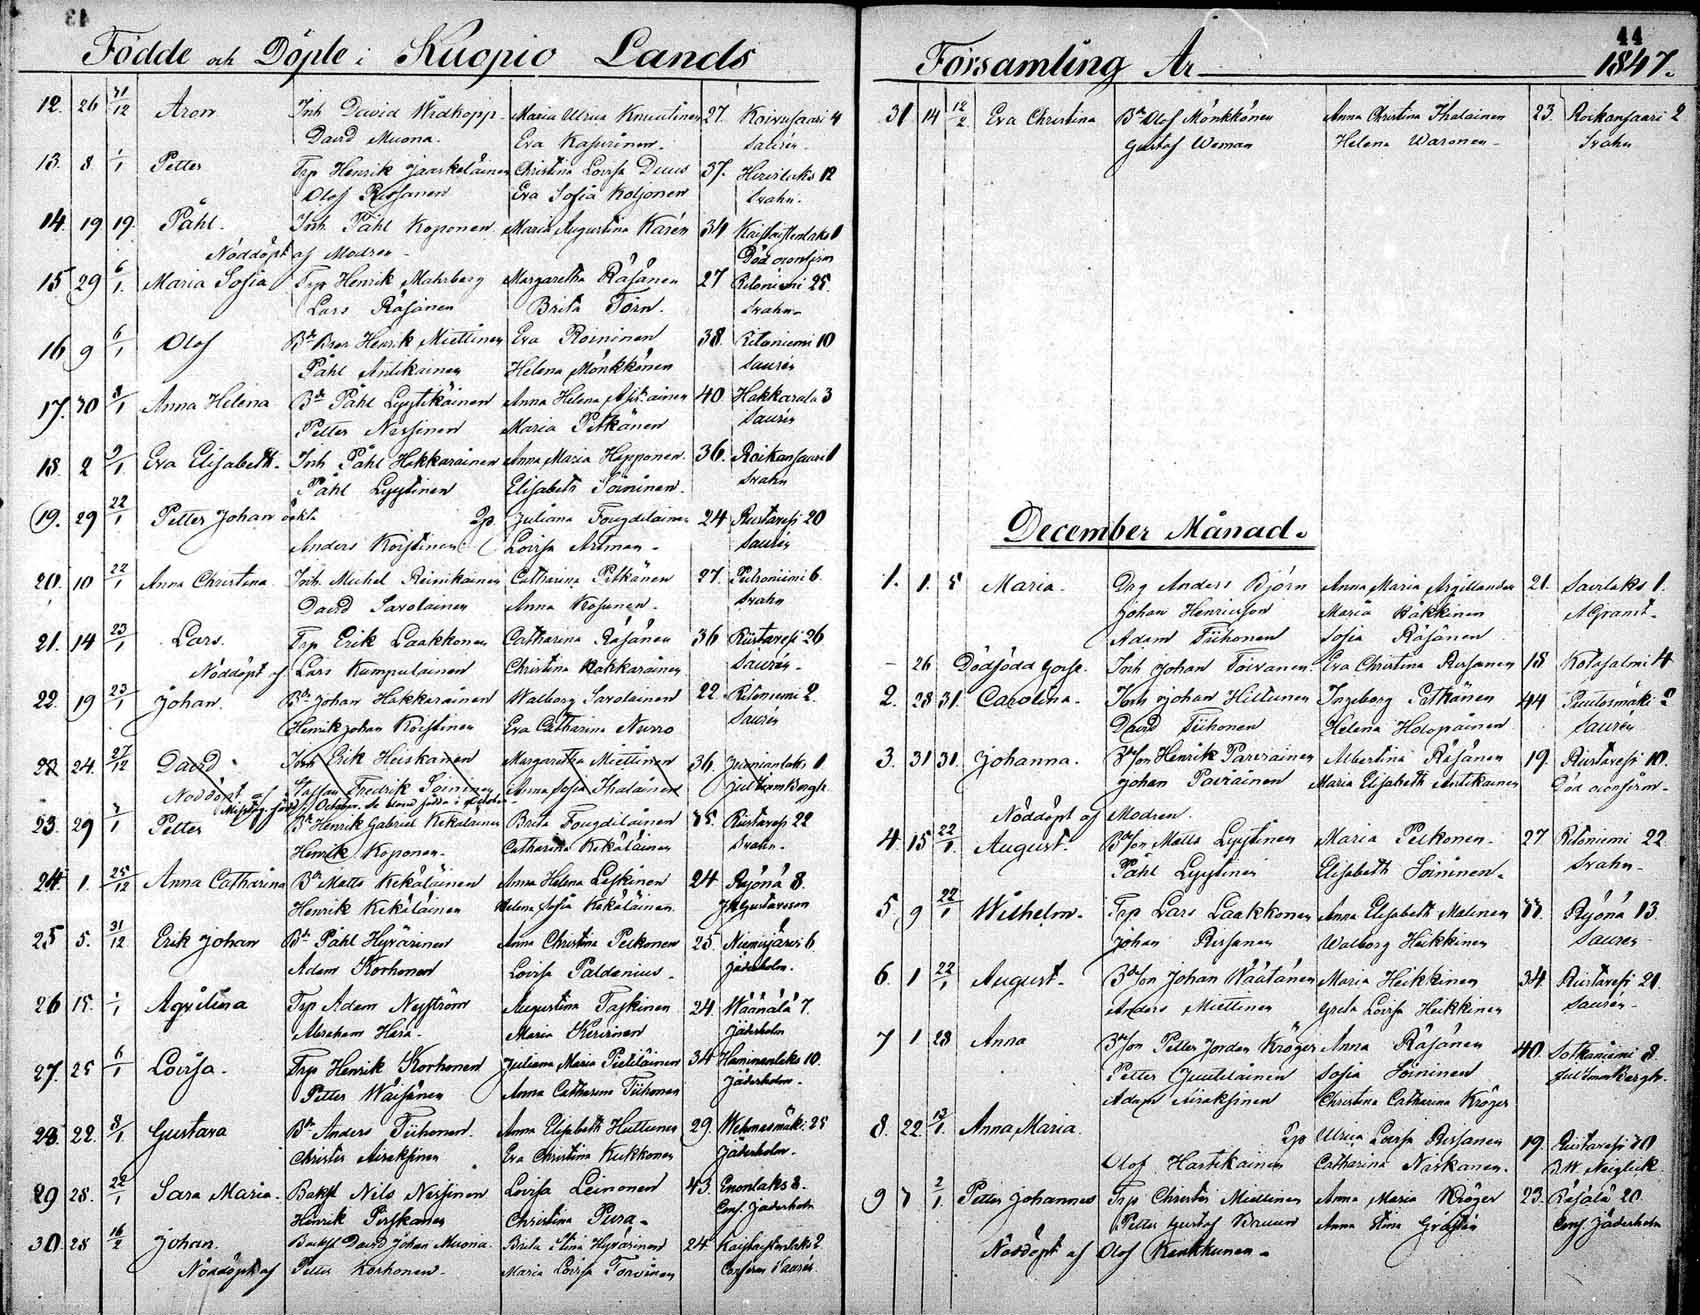 43
Födde och Döpte i Kuopio Lands
12. 26 31/12 Aron Inh David Widkopp Maria Ulrica Knuutinen 27. Koivusaari 4
David Muona. Eva Kasurinen. Saurén
13. 8 1/1 Petter Trp Henrik Jääskeläinen Christina Lovisa Duus 37. Hirvilaks 12
Olof Rissanen Eva Sofia Koljonen Svahn.
14. 19 19. Påhl. Inh Påhl Koponen Maria Augustina Karén 34
Nöddöpt af Modren
15 29 6/1 Maria Sofia Trp Henrik Mahrberg Margaretha Räsänen 27 Ritoniemi 25.
Lars Räsänen Brita Törn. Svahn
16 9 6/1 Olof Henrik Miettinen Eva Roininen 38. Ritoniemi 10
Påhl Antikainen Helena Mönkkönen Saurén
17. 30 8/1 Anna Helena Bd Påhl Lyytikäinen Anna Helena 40 Hakkarala 3
Petter Nissinen Maria Pitkänen Saurén
18. 2 9/1 Eva Elisabeth. Inh Påhl Hakkarainen Anna Maria Happonen. 36. Roikansaari 1
Påhl Lyytinen Elisabeth Soininen. Svahn
19. 29 22/1 Petter Johan oekta 2p Juliana Fougdilainen 24 Riistavesi 20
Anders Koistinen Lovisa Artman Saurén
20. 10 22/1 Anna Christina Inh. Michel Reinikainen Catharina Pitkänen 27. 6.
David Savolainen Anna Kosunen. Svahn
21. 14 23/1 Lars. Trp Erik Laakkonen Catharina Räsänen 36 Riistavesi 26
Nöddöpt af Lars Kumpulainen Christina Hakkarainen Saurén
22. 19 23/1 Johan. Bd Johan Hakkarainen Walborg Savolainen 22 Ritoniemi 2.
Henrik Johan Koistinen Eva Catharina Nurro Saurén
24. 27/12 David Inh Erik Heiskanen Margaretha Miettinen 36. 1
Nöddöpt af Staffan Fredrik Soininen Anna Sofia Ihalainen Jul Imm Bergh.
October. Se bland födda i October
23. 29 1 Petter Bd Henrik Gabriel Kekäläinen Brita Fougdilainen 35. Riistavesi 22
Henrik Koponen Catharina Kekäläinen Svahn
24. 1. 25/12 Anna Catharina Bd Matts Kekäläinen Anna Helena Leskinen 24 Ryönä 8.
Henrik Kekäläinen Helena Sofia Kekäläinen Gustavsson
25 5. 31/12 Erik Johan Bd Påhl Hyvärinen Anna Christina Pelkonen 25. Niemisjärvi 6
Adam Korhonen Lovisa Paldanius Jäderholm.
26 15. 1/1 Aqvilina Trp Adam Nyström Augustina Taskinen 24. Wäänälä 7.
Abraham Hara Maria Kervinen Jäderholm
27. 25 6/1 Lovisa. Trp Henrik Korhonen Juliana Maria Pietiläinen 34 Haminanlaks 10.
Petter Wäisänen Anna Catharina Tiihonen Jäderholm
28. 22. 8/1 Gustava Bd Anders Tiihonen. Anna Elisabeth Huttunen 29. Wehmasmäki 25
Christer Airaksinen Eva Christina Kukkonen Jäderholm.
29 28. 22/1 Sara Maria. Backst Nils Nissinen Lovisa Leinonen 43. Enonlaks 8.
Henrik Perskanen Christina Pura Conf. Jäderholm
30. 28 16/2 Johan. Backst David Johan Muona. Brita Stina Hyvärinen 24. 2
Nöddöpt af Petter Korhonen. Maria Lovisa Toivanen Saurén
44
Församling År 1847.
31 14 12/2 Eva Christina Bd Olof Mönkkönen Anna Christina Ihalainen 23. Roikansaari 2
Gustaf Woman Helena Waronen Svahn
December Månad.
1. 1. 5 Maria. Drg Anders Björn Anna Maria Argillander 21. Savilaks 1.
Johan Henricsson Maria Häkkinen AGranit
Adam Tiihonen Sofia Räsänen
– 26 Dödfödd gosse. Inh Johan Toivanen Eva Christina Rissanen 18 Kotasalmi 4
2. 28 31. Carolina. Inh Johan Hiltunen Ingeborg Pitkänen 44 Puutosmäki 2
David Tiihonen Helena Holopainen Saurén
3. 31 31. Johanna. Bdson Henrik Parviainen Albertina Räsänen 19. Riistavesi 10.
Johan Parviainen Maria Elisabeth Antikainen
Nöddöpt af Modren.
4 15 22/1. August. Bdson Matts Lyytinen Maria Pelkonen. 27 Ritoniemi 22
Påhl Lyytinen Elisabeth Soininen. Svahn
5. 9 22/1 Wilhelm. Trp Lars Laakkonen Anna Elisabeth Malinen 33. Ryönä 13.
Johan Rissanen Walborg Heikkinen Saurén
6. 1 22/1 August. Bdson Johan Wäätänen Maria Heikkinen 34. Riistavesi 21.
Anders Miettinen Greta Lovisa Heikkinen Saurén
7 1 28 Anna Bdson Petter Jordan Kröger Anna Räsänen 40. Sotkaniemi 8.
Petter Juutilainen Sofia Soininen Jul Imm Bergh.
Adam Airaksinen Christina Catharina Kröger
8. 22. 13/1. Anna Maria 2p Ulrica Lovisa Rissanen 19. Riistavesi 30
Olof Hartikainen Catharina Niskanen. B.W. Neiglick
9 3 2/1. Petter Johannes Trp Christer Miettinen Anna Maria Kröger 23. Räsälä 20.
Petter Gustaf Bruun Anna Stina Conf. Jäderholm
Nöddöpt af Olof Kinkkunen